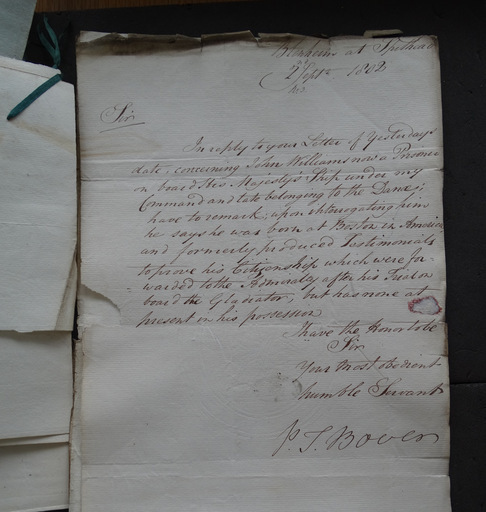 Blenheim at Spithead
2nd Sept 1802
Sir
In reply to your Letter of Yesterdays
date, concerning John Williams now a Prisoner
on board His Majesty's Ship under my
Command and late belonging to the Danae;
have to remark, upon interrogating him
he says he was born at Boston in America
and formerly produced Testimonials
to prove his Citizenship which were for-
warded to the Admiralty after his Trial on
board the Gladiator, but has none at
present in his possession
I have the Honor to be
Sir
Your most obedient
humble Servant
P. T. Bover